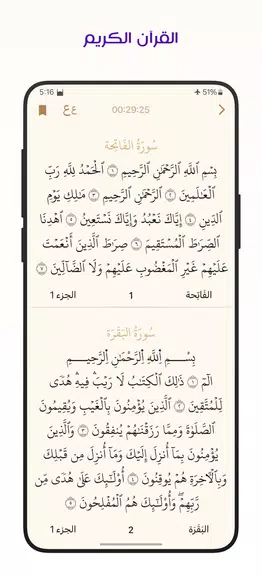 القرآن الكريم
5:16 51%
عع 00:29:25
سُورَةُ الفَاتِحَة
بِسْمِ ٱللَّهِ ٱلرَّحْمَٰنِ ٱلرَّحِيمِ ١ ٱلْحَمْدُ لِلَّهِ رَبِّ
ٱلْعَٰلَمِينَ ٢ ٱلرَّحْمَٰنِ ٱلرَّحِيمِ ٣ مَٰلِكِ يَوْمِ
ٱلدِّينِ ٤ إِيَّاكَ نَعْبُدُ وَإِيَّاكَ نَسْتَعِينُ ٥ ٱهْدِنَا
ٱلصِّرَٰطَ ٱلْمُسْتَقِيمَ ٦ صِرَٰطَ ٱلَّذِينَ أَنْعَمْتَ
عَلَيْهِمْ غَيْرِ ٱلْمَغْضُوبِ عَلَيْهِمْ وَلَا ٱلضَّآلِّينَ ٧
الفَاتِحة 1 الجزء ١
سُورَةُ البَقَرَة
بِسْمِ ٱللَّهِ ٱلرَّحْمَٰنِ ٱلرَّحِيمِ
الٓمٓ ١ ذَٰلِكَ ٱلْكِتَٰبُ لَا رَيْبَۛ فِيهِۛ هُدًى
لِّلْمُتَّقِينَ ٢ ٱلَّذِينَ يُؤْمِنُونَ بِٱلْغَيْبِ وَيُقِيمُونَ
ٱلصَّلَوٰةَ وَمِمَّا رَزَقْنَٰهُمْ يُنفِقُونَ ٣ وَٱلَّذِينَ
يُؤْمِنُونَ بِمَآ أُنزِلَ إِلَيْكَ وَمَآ أُنزِلَ مِن قَبْلِكَ
وَبِٱلْءَاخِرَةِ هُمْ يُوقِنُونَ ٤ أُو۟لَٰٓئِكَ عَلَىٰ هُدًى مِّن
رَّبِّهِمْ ۖ وَأُو۟لَٰٓئِكَ هُمُ ٱلْمُفْلِحُونَ ٥
البَقَرَة 2 الجزء ١